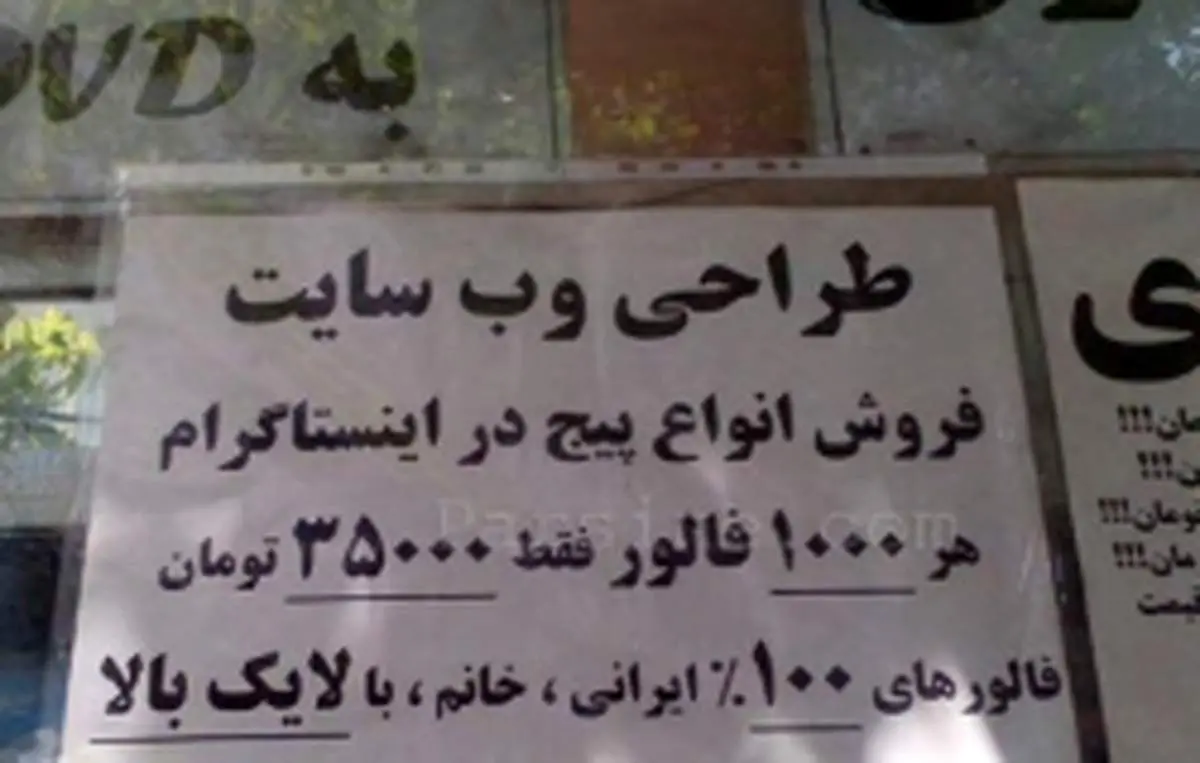 به DVD
طراحی وب سایت
فروش انواع پیج در اینستاگرام
هر ۱۰۰۰ فالور فقط ۳۵۰۰۰ تومان
فالورهای ۱۰۰٪ ایرانی ، خانم ، با لایک بالا
ی
مان!!!
ن!!!
تومان!!!
مان!!!
قیمت